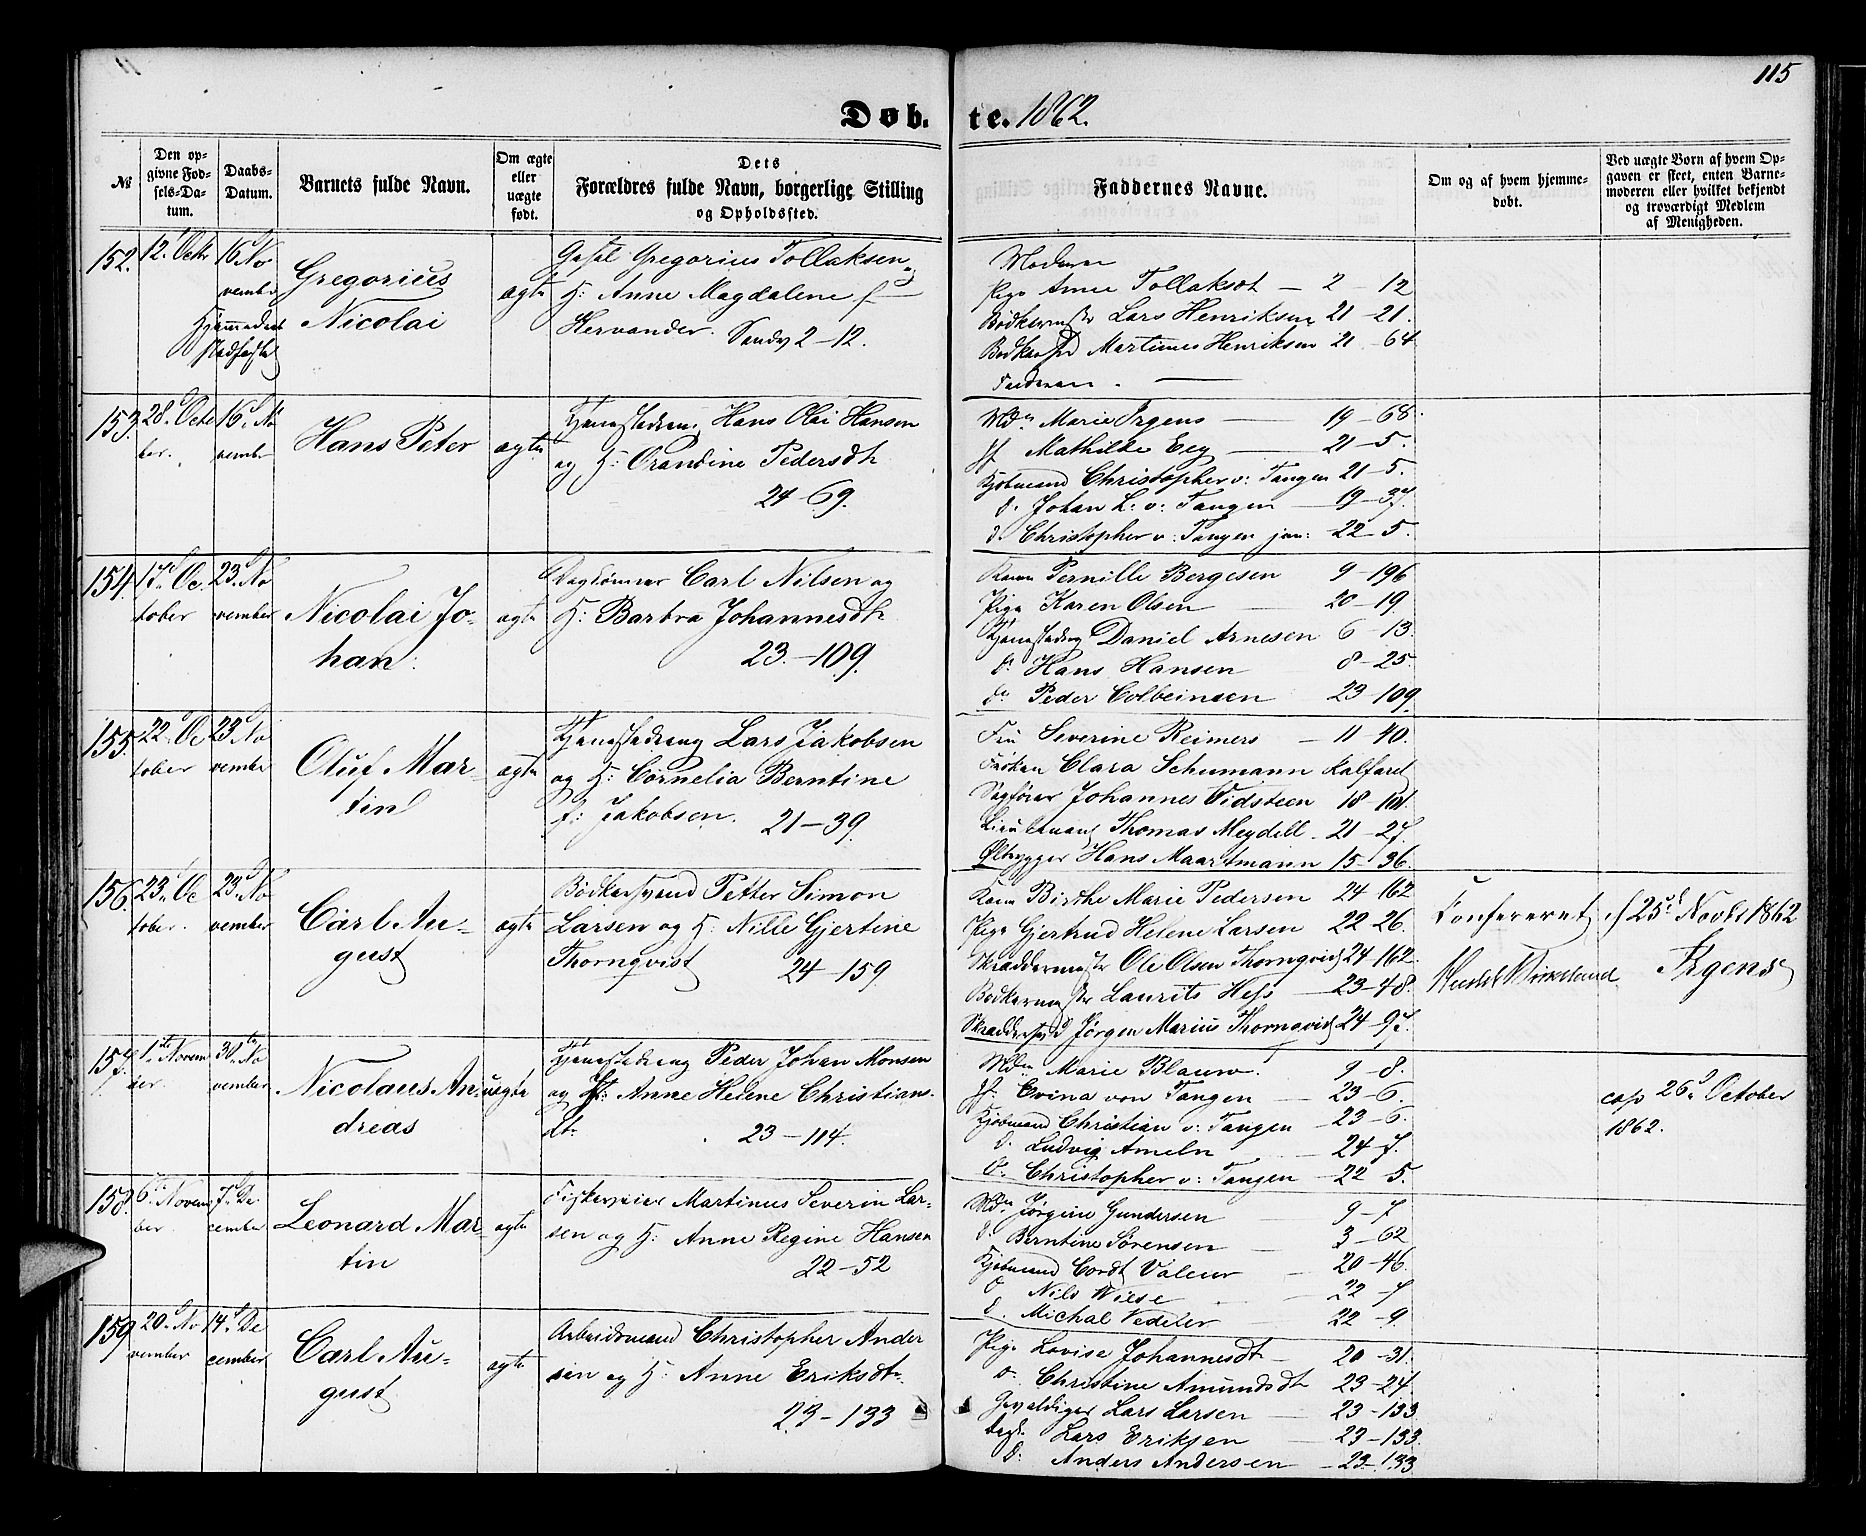 115
Døb. te. 1862.
№
Den opgivne Fødsels-Datum.
Daabs-Datum.
Barnets fulde Navn.
Om ægte eller uægte født.
Dets
Forældres fulde Navn, borgerlige Stilling
og Opholdssted.
Faddernes Navne.
Om og af hvem hjemmedøbt.
Ved uægte Børn af hvem Opgaven er skeet, enten Barnemoderen eller hvilket bekjendt og troværdigt Medlem af Menigheden.
152. 12. Octr 16. November
Hjemmedaab stadfæstet
Gregorius Nicolai
ægte
Gregorius Tollaksen og
H: Anne Magdalene f
Hervander. Sandv 2-12.
Moderen
Pige Anne Tollaksdt - 2-12
Bødkermester Lars Henriksen 21-21.
Bødkersvd Martinus Henriksen 21-64
Faderen.
153. 28. October. 16. November
Hans Peter
ægte
Tjenestedreng Hans Olai Hansen
og H: Orandine Pedersdtr
24-69.
Mdm Marie Irgens - 19-68.
Jf Mathilde Eeg - 21-5.
Kjøbmand Christopher v: Tangen 21-5.
d. Johan L. v: Tangen - 19-37.
d. Christopher v: Tangen jun: 22-5.
154. 17. October 23. November
Nicolai Johan.
ægte
Dagleonner Carl Nilsen og
H: Barbra Johannesdtr
23.-109.
Kone Pernille Bergesen 9-196
Pige Karen Olsen - 20-19.
Tjenestedreng Daniel Arnesen 6-13.
d. Hans Hansen 8-25.
do Peder Colbeinsen 23-109.
155. 22. October 23. November
Oluf Martin
ægte
Tjenestedreng Lars Jakobsen
og H: Cornelia Berntine
f: Jakobsen. 21-39.
Fru Severine Reimers - 11-40.
Frøken Clara Schumann Kalfaret
Sagfører Johannes Vidsteen 18-101.
Lieutenant Thomas Meydell. 21-27.
Ølbrygger Hans Maartmann 15-36.
156. 23. October. 23. November
Carl August
ægte
Bødkersvend Petter Simon
Larsen og H: Nille Gjertine
Thornqvist 24-159
Kone Birthe Marie Pedersen 24-162
Pige Gjertrud Helene Larsen 22-26.
Skræddermester Ole Olsen Thornqvist 24-162.
Bødkermester Laurits Hess - 23-48.
Skræddersvd Jørgen Marius Thornqvist 24-97.
Confereret, d 25d Novbr 1862
Irgens
157. 1ste November. 30te November
Nicolaus Andreas
uægte
Tjenestedreng Peder Johan Monsen
og Anne Helene Christians-
dtr. 23-114.
Mdm Marie Blauw. 9-8.
Jf: Evina von Tangen - 23-6.
Kjøbmand Christian v: Tangen - 23-6.
d. Ludvig Ameln - 24-7.
d. Christopher v: Tangen - 22-5.
cop 26d October
1862.
158. 6. November. 7. December
Leonard Martin
ægte
Fiskerpier Martinus Severin Lar-
sen og H: Anne Regine Hansen
22-52
Mdm Jørgine Gundersen 9-7
d. Berntine Sørensen - 3-62
Kjøbmand Cordt Valeur - 20-46.
d Nils Wiese - 22-7
d. Michal Vedeler - 22-9.
159. 20. November 14. December
Carl August
ægte
Arbeidsmand Christopher Ander
sen og H: Anne Eriksdtr.
23-133
Pige Lovise Johannesdt - 20-31.
d. Christine Amundsdt 23-24.
Gevaldiger Lars Larsen - 23-133.
Lars Eriksen - 23-133.
d. Anders Andersen - 23-133